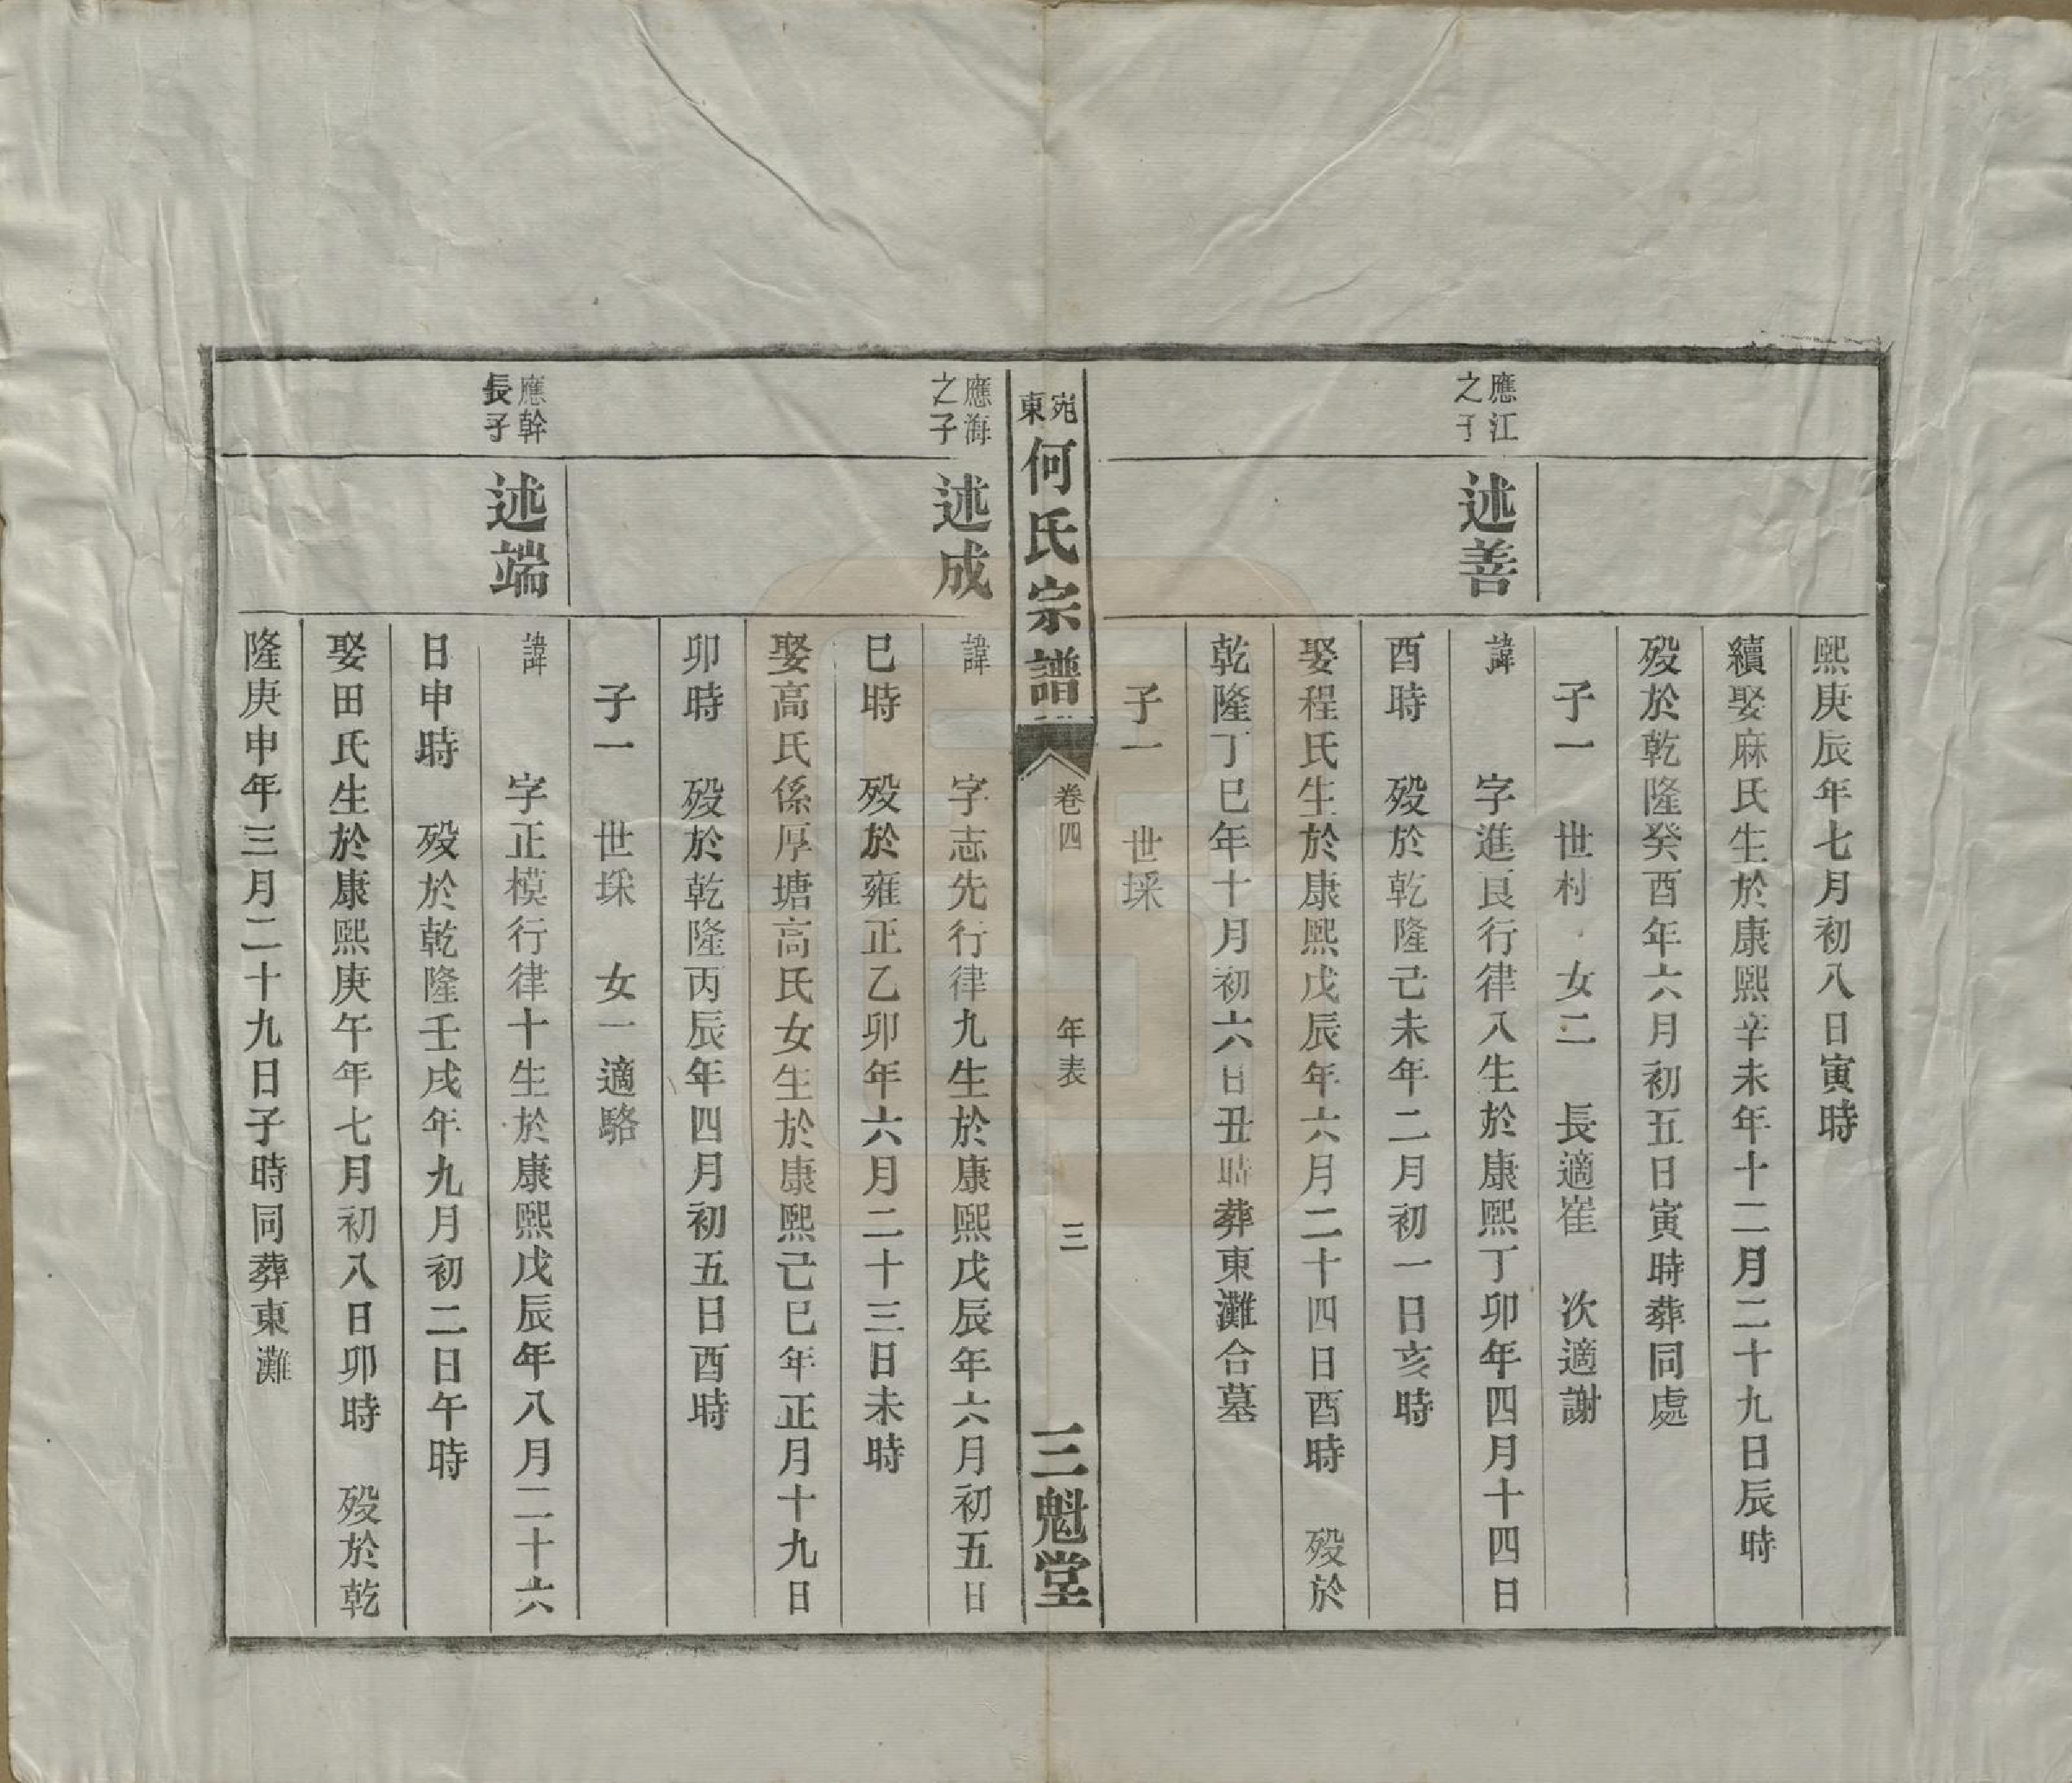 熙庚辰年七月初八日寅時
續娶麻氏生於康熙辛未年十二月二十九日辰時
歿於乾隆癸酉年六月初五日寅時葬同處
子一　世村　女二　長適崔　次適謝
應江之子
述善
諱　字進良行律八生於康熙丁卯年四月十四日
酉時　歿於乾隆己未年二月初一日亥時
娶程氏生於康熙戊辰年六月二十四日酉時　歿於
乾隆丁巳年十月初六日丑時葬東灘合墓
子一　世埰
宛東何氏宗譜　卷四　年表　三　三魁堂
應海之子
述成
諱　字志先行律九生於康熙戊辰年六月初五日
巳時　歿於雍正乙卯年六月二十三日未時
娶高氏係厚塘高氏女生於康熙己巳年正月十九日
卯時　歿於乾隆丙辰年四月初五日酉時
子一　世埰　女一適駱
應幹長子
述端
諱　字正模行律十生於康熙戊辰年八月二十六
日申時　歿於乾隆壬戌年九月初二日午時
娶田氏生於康熙庚午年七月初八日卯時　歿於乾
隆庚申年三月二十九日子時同葬東灘